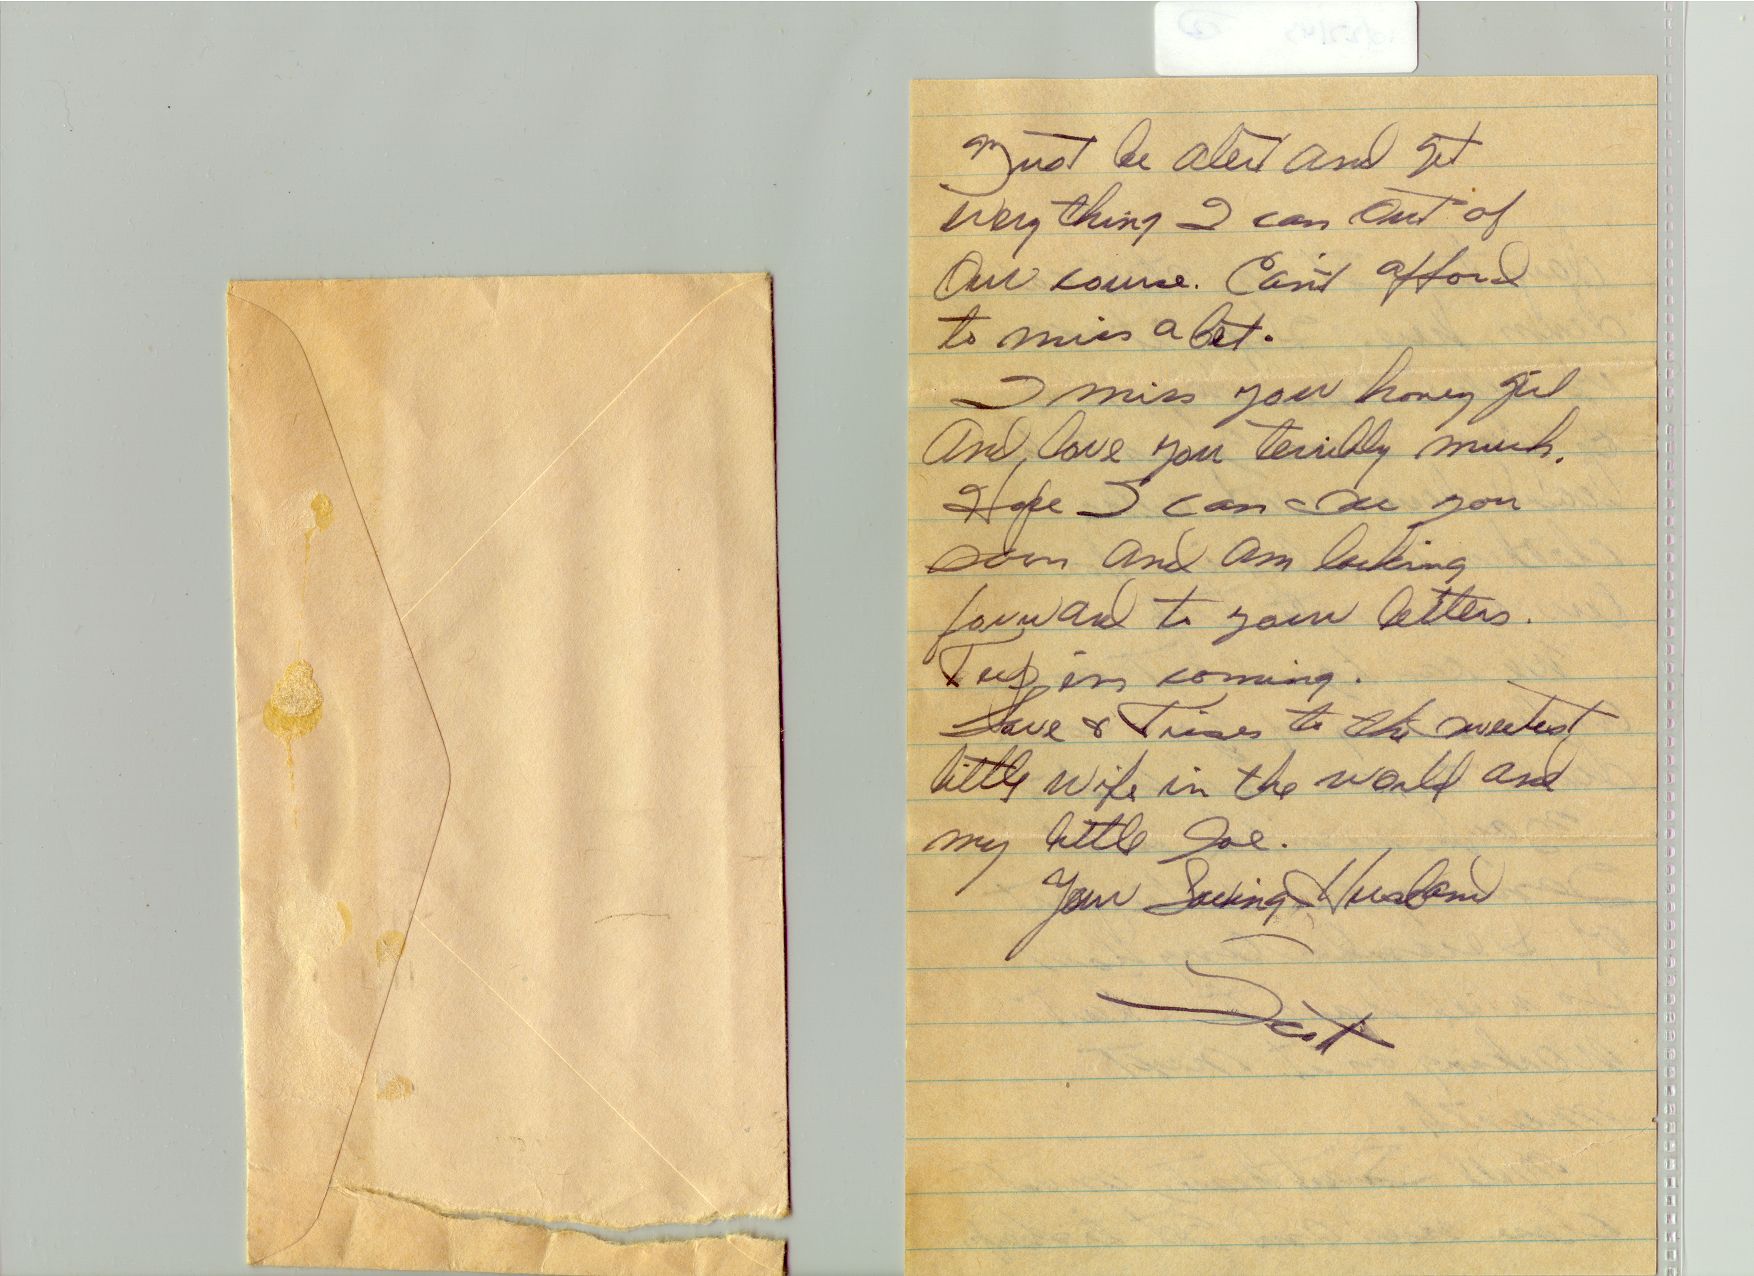 Must be alert and get
everything I can out of
our course. Can't afford
to miss a bet.
I miss your honey girl
and love you terribly much.
Hope I can see you
soon and am looking
forward to your letters.
Keep em coming.
Love & Kisses to the sweetest
little wife in the world and
my little Joe.
Your Loving Husband
Scott